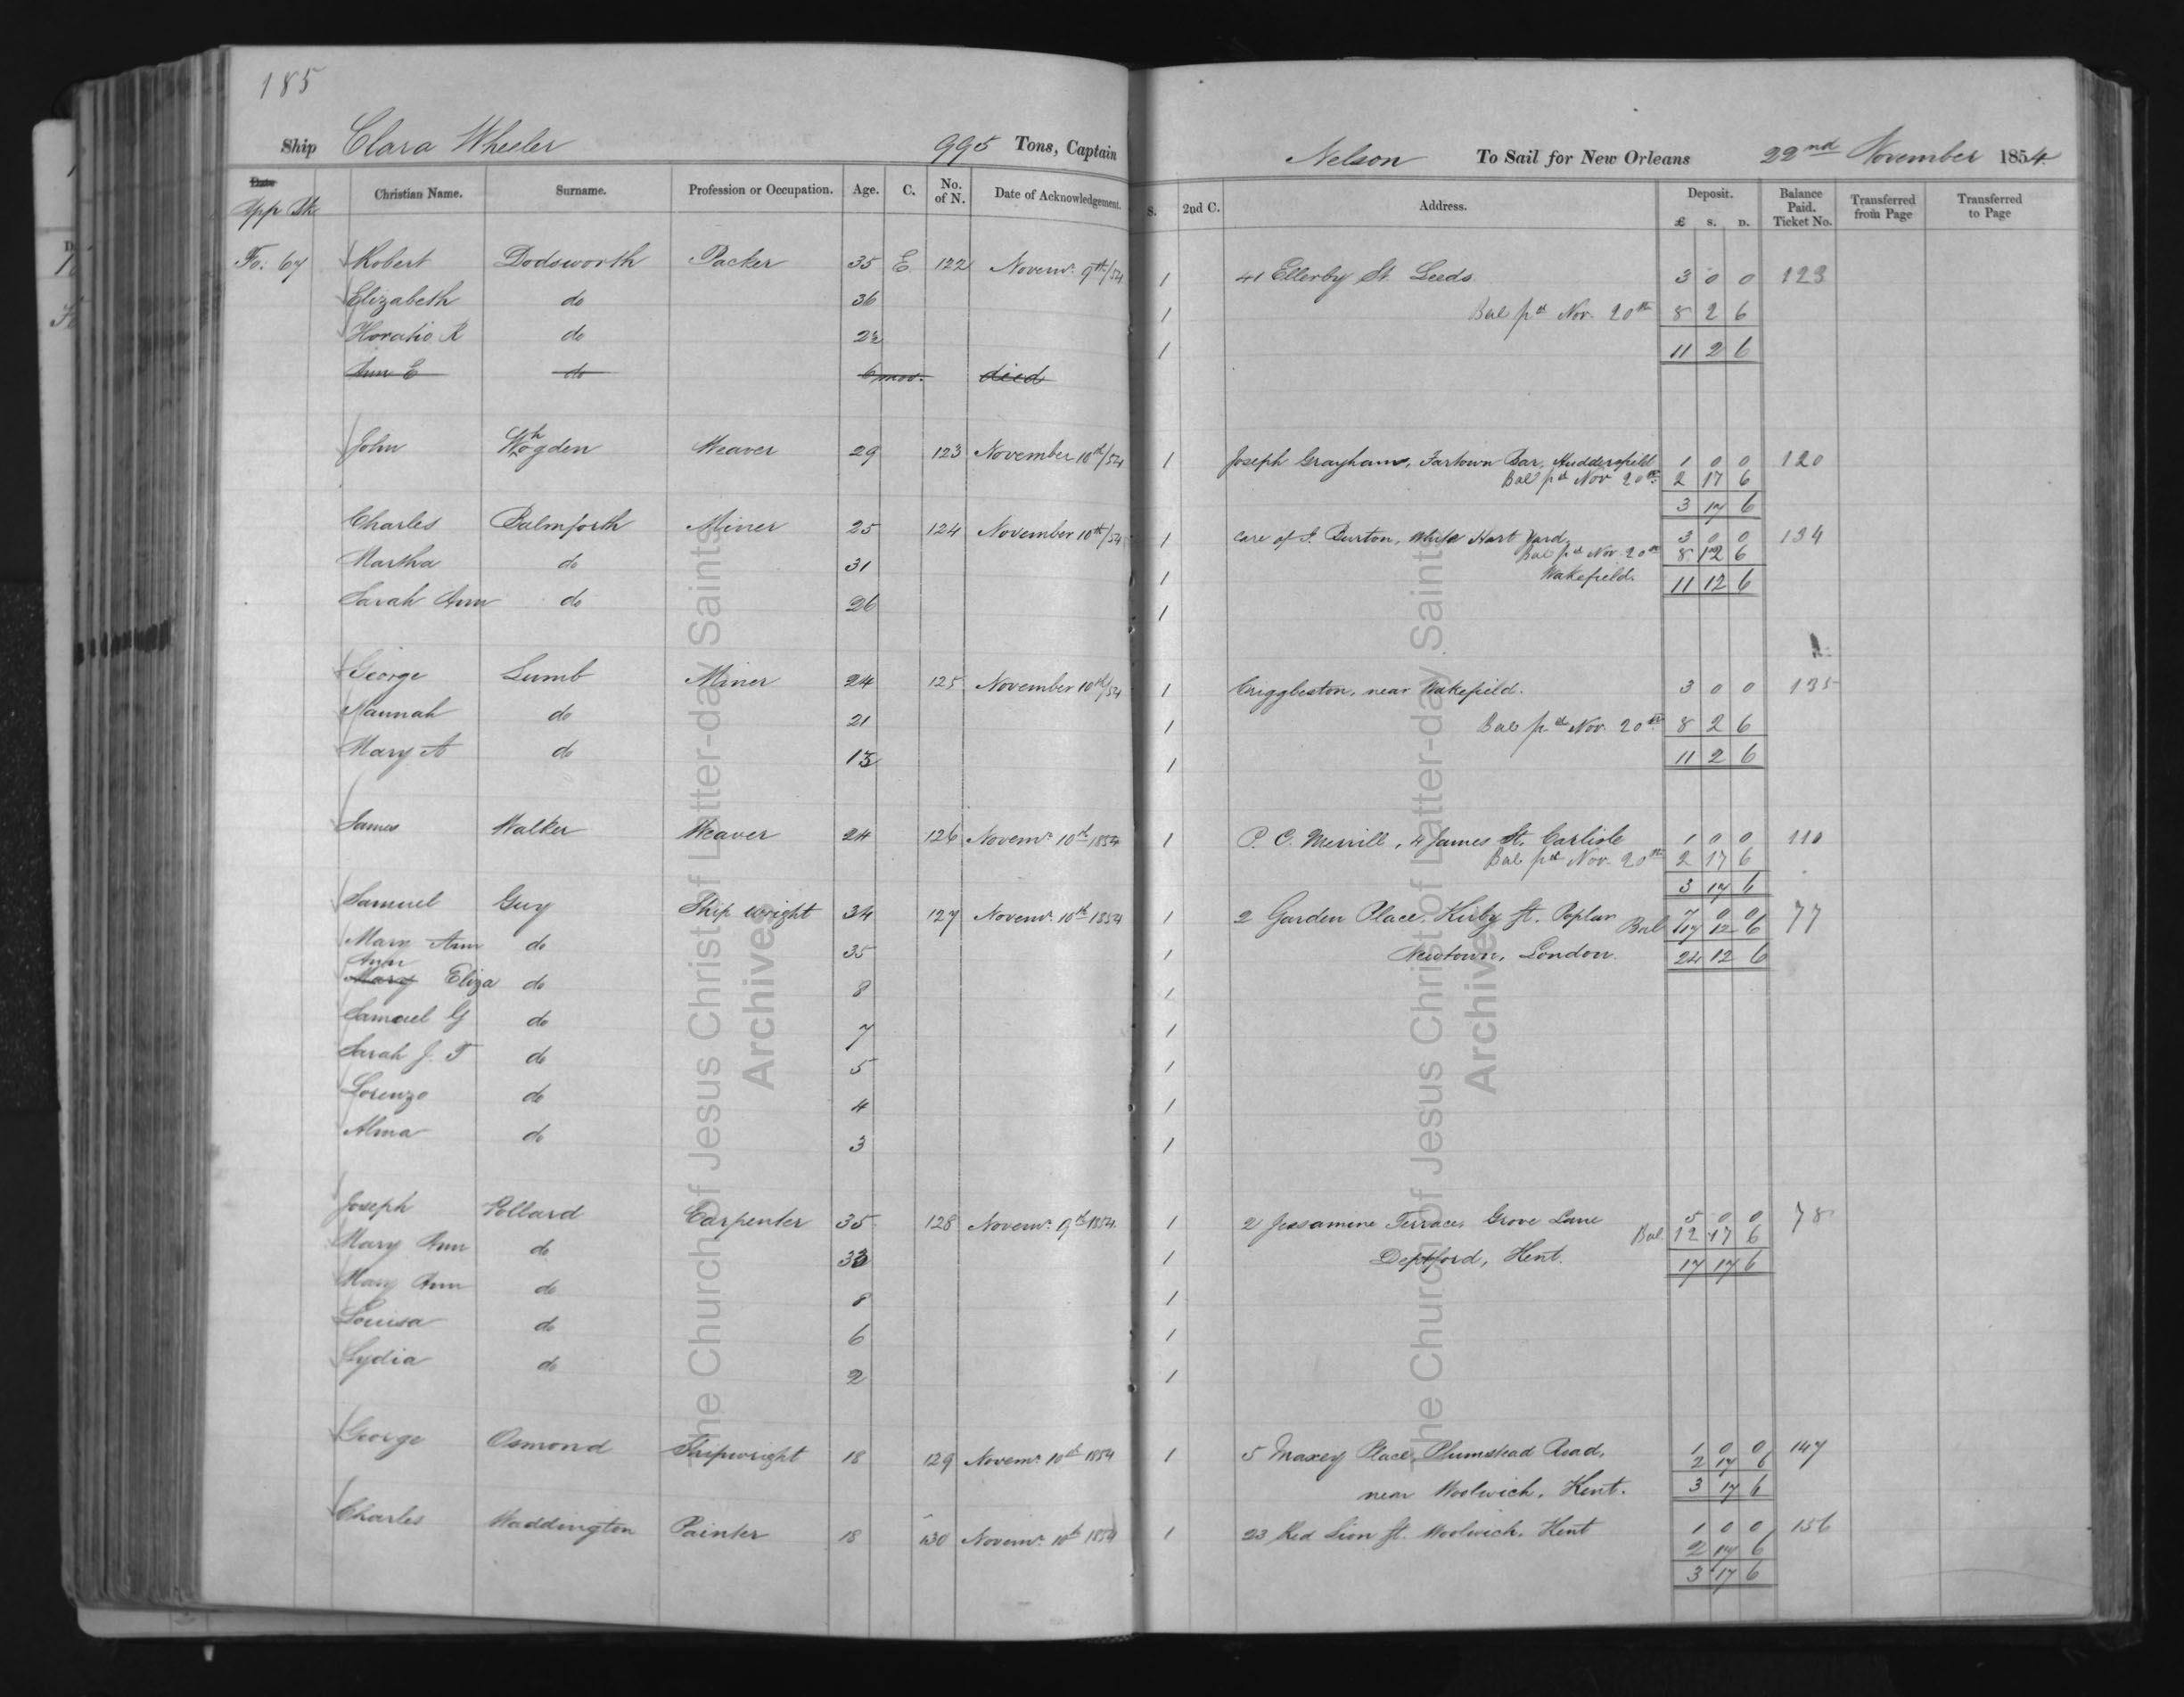 185
Ship Clara Wheeler 995 Tons, Captain Nelson To Sail for New Orleans 22nd November 1854.
Date Christian Name. Surname. Profession or Occupation. Age. C. No. of N. Date of Acknowledgement. S. 2nd C. Address. Deposit. £ s. D. Balance Paid. Ticket No. Transferred from Page Transferred to Page
App Bk
Fo: 67 Robert Dodsworth Packer 35 E. 122 Novemr. 9th/54 1 41 Ellerby St. Leeds. 3 0 0 123
Elizabeth do 36 1 Bal pd Nov. 20th 8 2 6
Horatio R do 1 11 2 6
Ann E do 6 mos. died
John Wogden Weaver 29 123 November 10th/54 1 Joseph Grayham, Fartown Bar, Huddersfield 1 0 0 120
Bal pd Nov 20th 2 17 6
3 17 6
Charles Balmforth Miner 25 124 November 10th/54 1 care of J. Burton, White Hart Yard, 3 0 0 134
Bal pd Nov. 20th 8 12 6
Martha do 31 1 Wakefield. 11 12 6
Sarah Ann do 26 1
George Lumb Miner 24 125 November 10th/54 1 Criggleston, near Wakefield. 3 0 0 135
Hannah do 21 1 Bal pd Nov. 20th 8 2 6
Mary A do 13 1 11 2 6
James Walker Weaver 24 126 Novemr. 10th 1854 1 P. C. Merrill, 4 James St. Carlisle 1 0 0 110
Bal pd Nov. 20th 2 17 6
3 17 6
Samuel Guy Ship wright 34 127 Novemr. 10th 1854 1 2 Garden Place, Kirby St. Poplar 7 0 0 77
Bal 17 12 6
Mary Ann do 35 1 Newtown, London. 24 12 6
Ann
Mary Eliza do 8 1
Samuel G do 7 1
Sarah J. T do 5 1
Lorenzo do 4 1
Alma do 3 1
Joseph Pollard Carpenter 35 128 Novemr. 9th 1854. 1 2 Jessamine Terrace, Grove Lane 5 0 0 78
Bal 12 17 6
Mary Ann do 33 1 Deptford, Kent. 17 17 6
Mary Ann do 8 1
Louisa do 6 1
Lydia do 2 1
George Osmond Shipwright 18 129 Novemr. 10th 1854 1 5 Maxey Place, Plumstead Road, 1 0 0 147
2 17 6
near Woolwich, Kent. 3 17 6
Charles Waddington Painter 18 130 Novemr. 10th 1854 1 23 Red Lion St. Woolwich, Kent 1 0 0 156
2 17 6
3 17 6
The Church of Jesus Christ of Latter-day Saints
Archives
The Church of Jesus Christ of Latter-day Saints
Archives